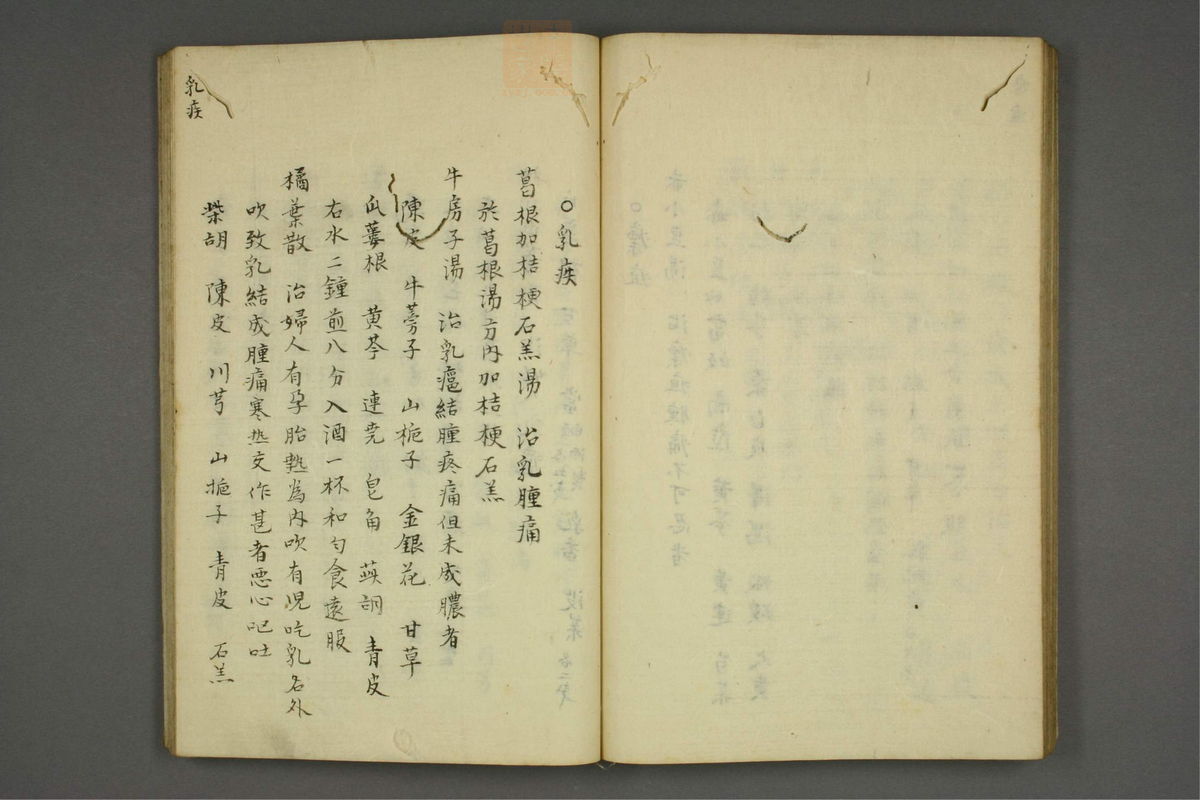 ○乳疾
葛根加桔梗石羔湯 治乳腫痛
於葛根湯方內加桔梗石羔
牛房子湯 治乳癰結腫疼痛但未成膿者
陳皮 牛蒡子 山梔子 金銀花 甘草
瓜蔞根 黄芩 連堯 皂角 茈胡 青皮
右水二鐘煎八分入酒一杯和勻食遠服
橘葉散 治婦人有孕胎熱為內吹有児吃乳名外
吹致乳結成腫痛寒热交作甚者悪心呕吐
柴胡 陳皮 川芎 山梔子 青皮 石羔
乳疾